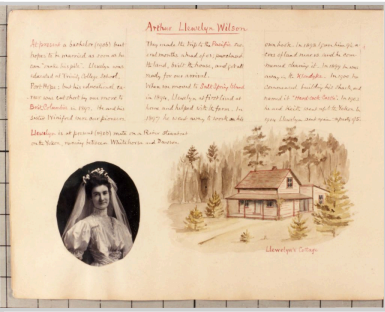 Arthur Llewelyn Wilson
At present a bachelor (1906) but
hopes to be married as soon as he
can "make his pile". Llewelyn was
educated at Trinity College School,
Port Hope; but his educational
was cut short by our move to
British Columbia in 1894. He and his
sister Winifred were our pioneers.
They made the trip to the Pacific
months ahead of us; purchased
the land, built the house, and got all
ready for our arrival.
When we moved to Salt Spring Island
in 1894, Llewelyn at first lived at
home and helped with the farm. In
1897 he went away to work on his
own hook. In 1898 I gave him
acres of land near us and he
commenced clearing it. In 1899 he ran
away to the Klondyke. In 1900 he
commenced building his shack, and
named it
and
Llewelyn is at present (1906) mate on a
on the Yukon, running between Whitehorse and Dawson
Llewelyn's Cottage